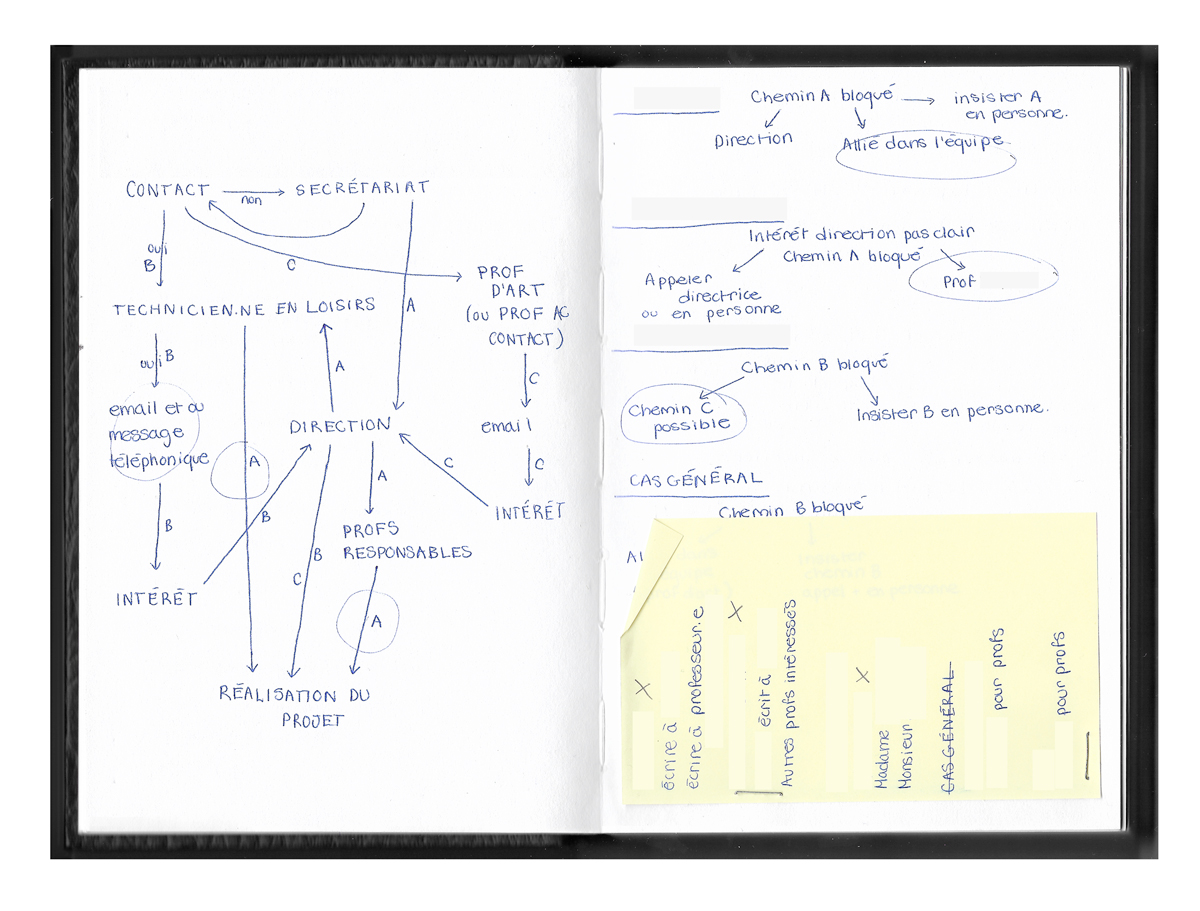 CONTACT
non
SECRÉTARIAT
oui
B
C
A
PROF
D'ART
(OU PROF AC
CONTACT)
TECHNICIEN.NE EN LOISIRS
oui B
A
C
email et ou
message
téléphonique
A
DIRECTION
email
B
B
A
C
C
INTÉRÊT
PROFS
RESPONSABLES
B
C
A
INTÉRÊT
RÉALISATION DU
PROJET
Chemin A bloqué
insister A
en personne.
Direction
Allié dans l'équipe
Intérêt direction pas clair
Chemin A bloqué
Appeler
directrice
ou en personne
Prof
Chemin B bloqué
Chemin C
possible
Insister B en personne.
CAS GÉNÉRAL
Chemin B bloqué
Al
X
écrire à
écrire à professeur.e
X
écrit à
Autres profs intéressés
X
Madame
Monsieur
CAS GÉNÉRAL
pour profs
pour profs